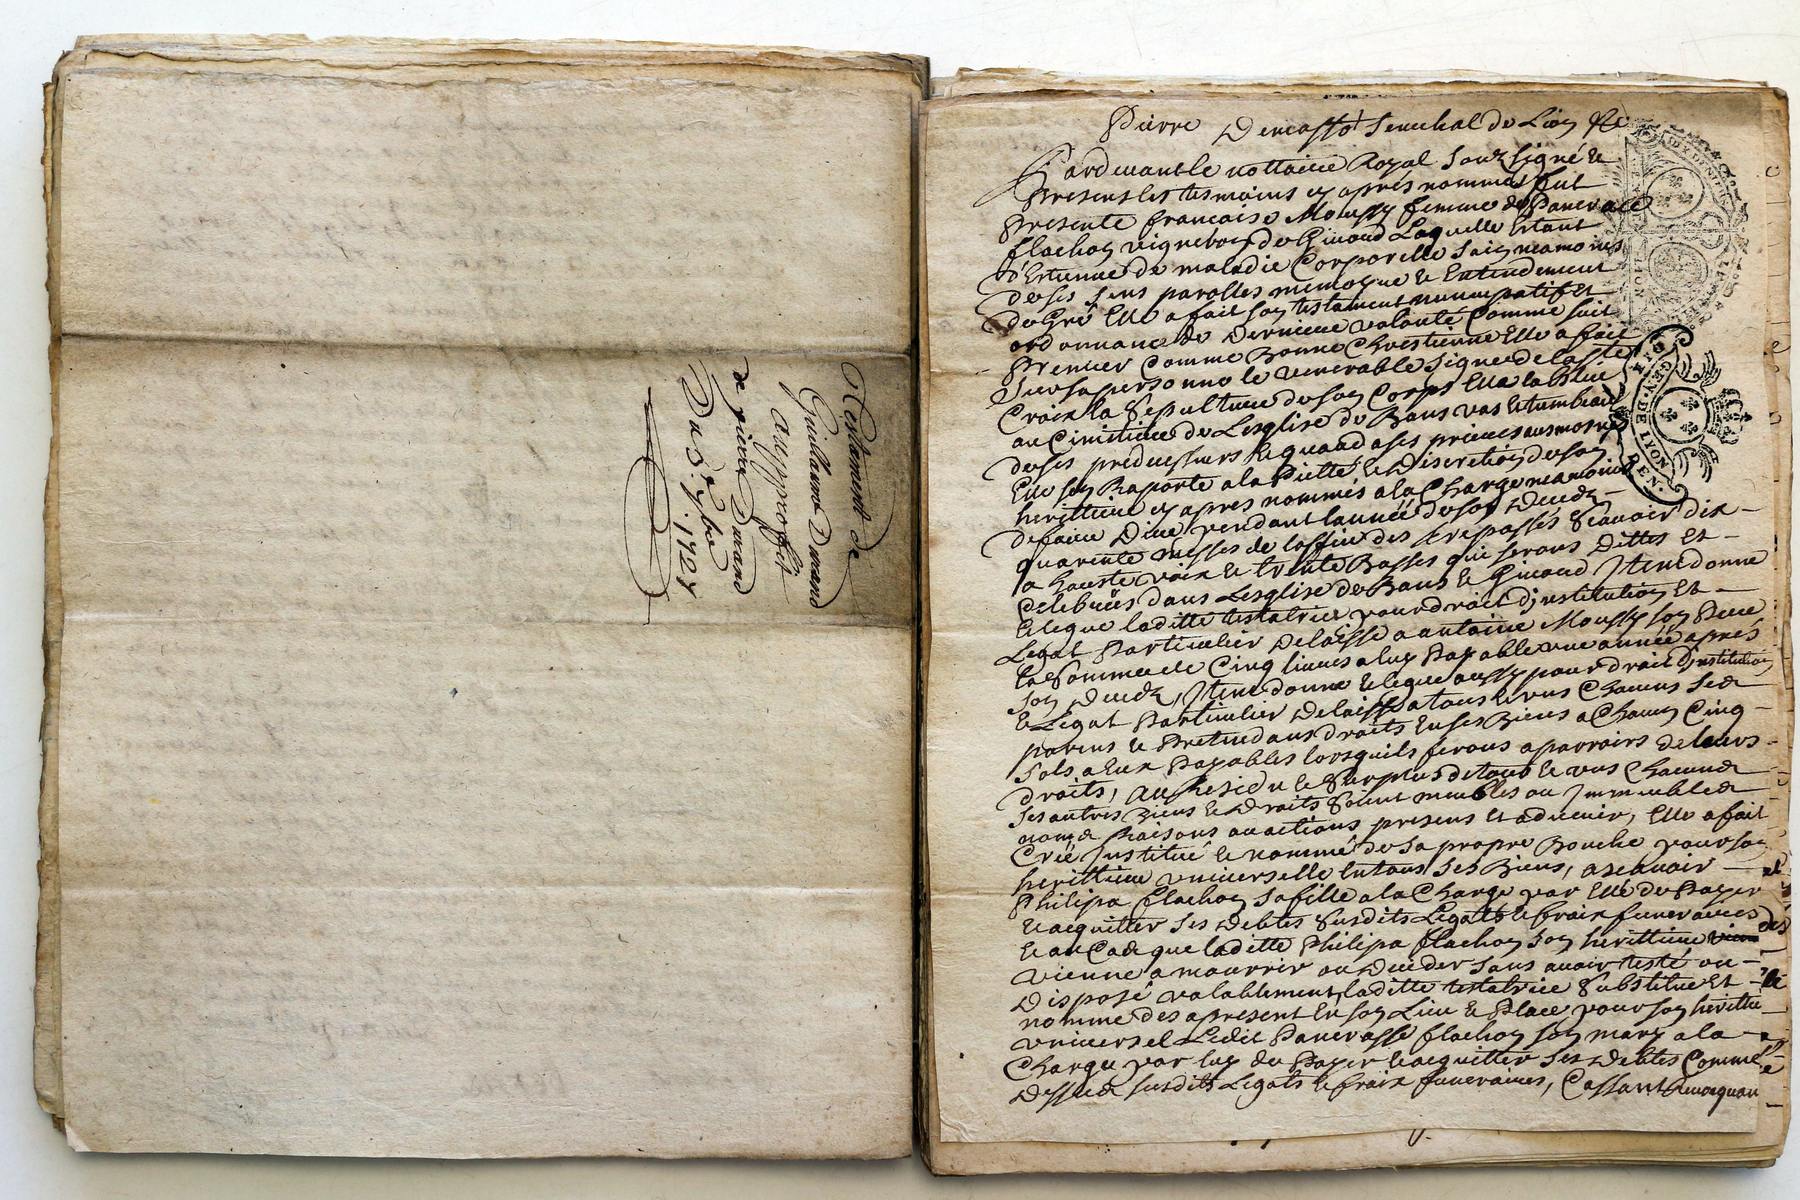 Testament de
Guillaume Durand
au pproffit
de pierre Durand
Du 3e 7bre
1724
Pierre Senechal de Lion &c
Pardevant le nottaire Royal soubsigné &
presens les tesmoins cy aprés nommés fut
presente francoise Moussy femme de Pancrace
flachon vigneron de Laquelle Estant
d'Etenue de maladie Corporelle saine
de ses sens parolles memoyre & Entendement
de Gré Elle a fait son testament nuncupatif et
ordonnance de Derniere volonté Comme suit
Premier Comme Bonne Chrestienne Elle a fait
sur sa personne le venerable signe de la ste
Croix la sepulture de son Corps Elle la Eslue
au Cimitiere de Lesglise de Bans vas & tumbeau
de ses predecesseurs & quand a ses prieres aumosnes
Elle sen Raporte a la Pietté & Discretion de son
herittiere cy apres nommés a la Charge neanmoins
de faire Dire pendant lannée de son Deceds
quarente messes de loffice des trepassés scavoir dix
a haute voix & trente Basses qui serons Dittes et
Celebrées dans Lesglise de Bans & Item donne
& legue laditte testatrice pour droit d'institution et
Legat particulier Delaisse a antoine Moussy son Pere
la somme de Cinq livres a luy Payable une année aprés
son Deceds, Item donne & legue aussy pour droit d'institution
& Legat particulier Delaisse a tous & uns Chacuns ses
parens & Pretendans droits En ses Biens a Chacun Cinq
sols a Eux Payables lorsquils ferons aparroirs de leurs
droits, au Residu & surplus de tous & uns Chacuns
ses autres Biens & Droits soient meubles ou Immeubles
noms Raisons ou actions presens et advenir, Elle a fait
Créé Institué & nommé de sa propre Bouche pour son
herittiere universelle En tous ses Biens, a scavoir
Philipa flachon sa fille a la Charge par Elle de Payer
& acquitter ses Debtes susdits Legats & fraix funeraires
& au Cas que laditte Philipa flachon son herittiere
vienne a mourrir ou Deceder sans avoir testé ou
Disposé valablement, laditte testatrice substitue et
nomme des apresent En son Lieu & Place pour son herittier
universel Ledit Pancrasse flachon son mary a la
Charge par luy de Payer & acquitter ses Debtes Comme
Dessus susdits Legats & fraix funeraires, Cassant
DIX DENIERS
GEN. DE LYON